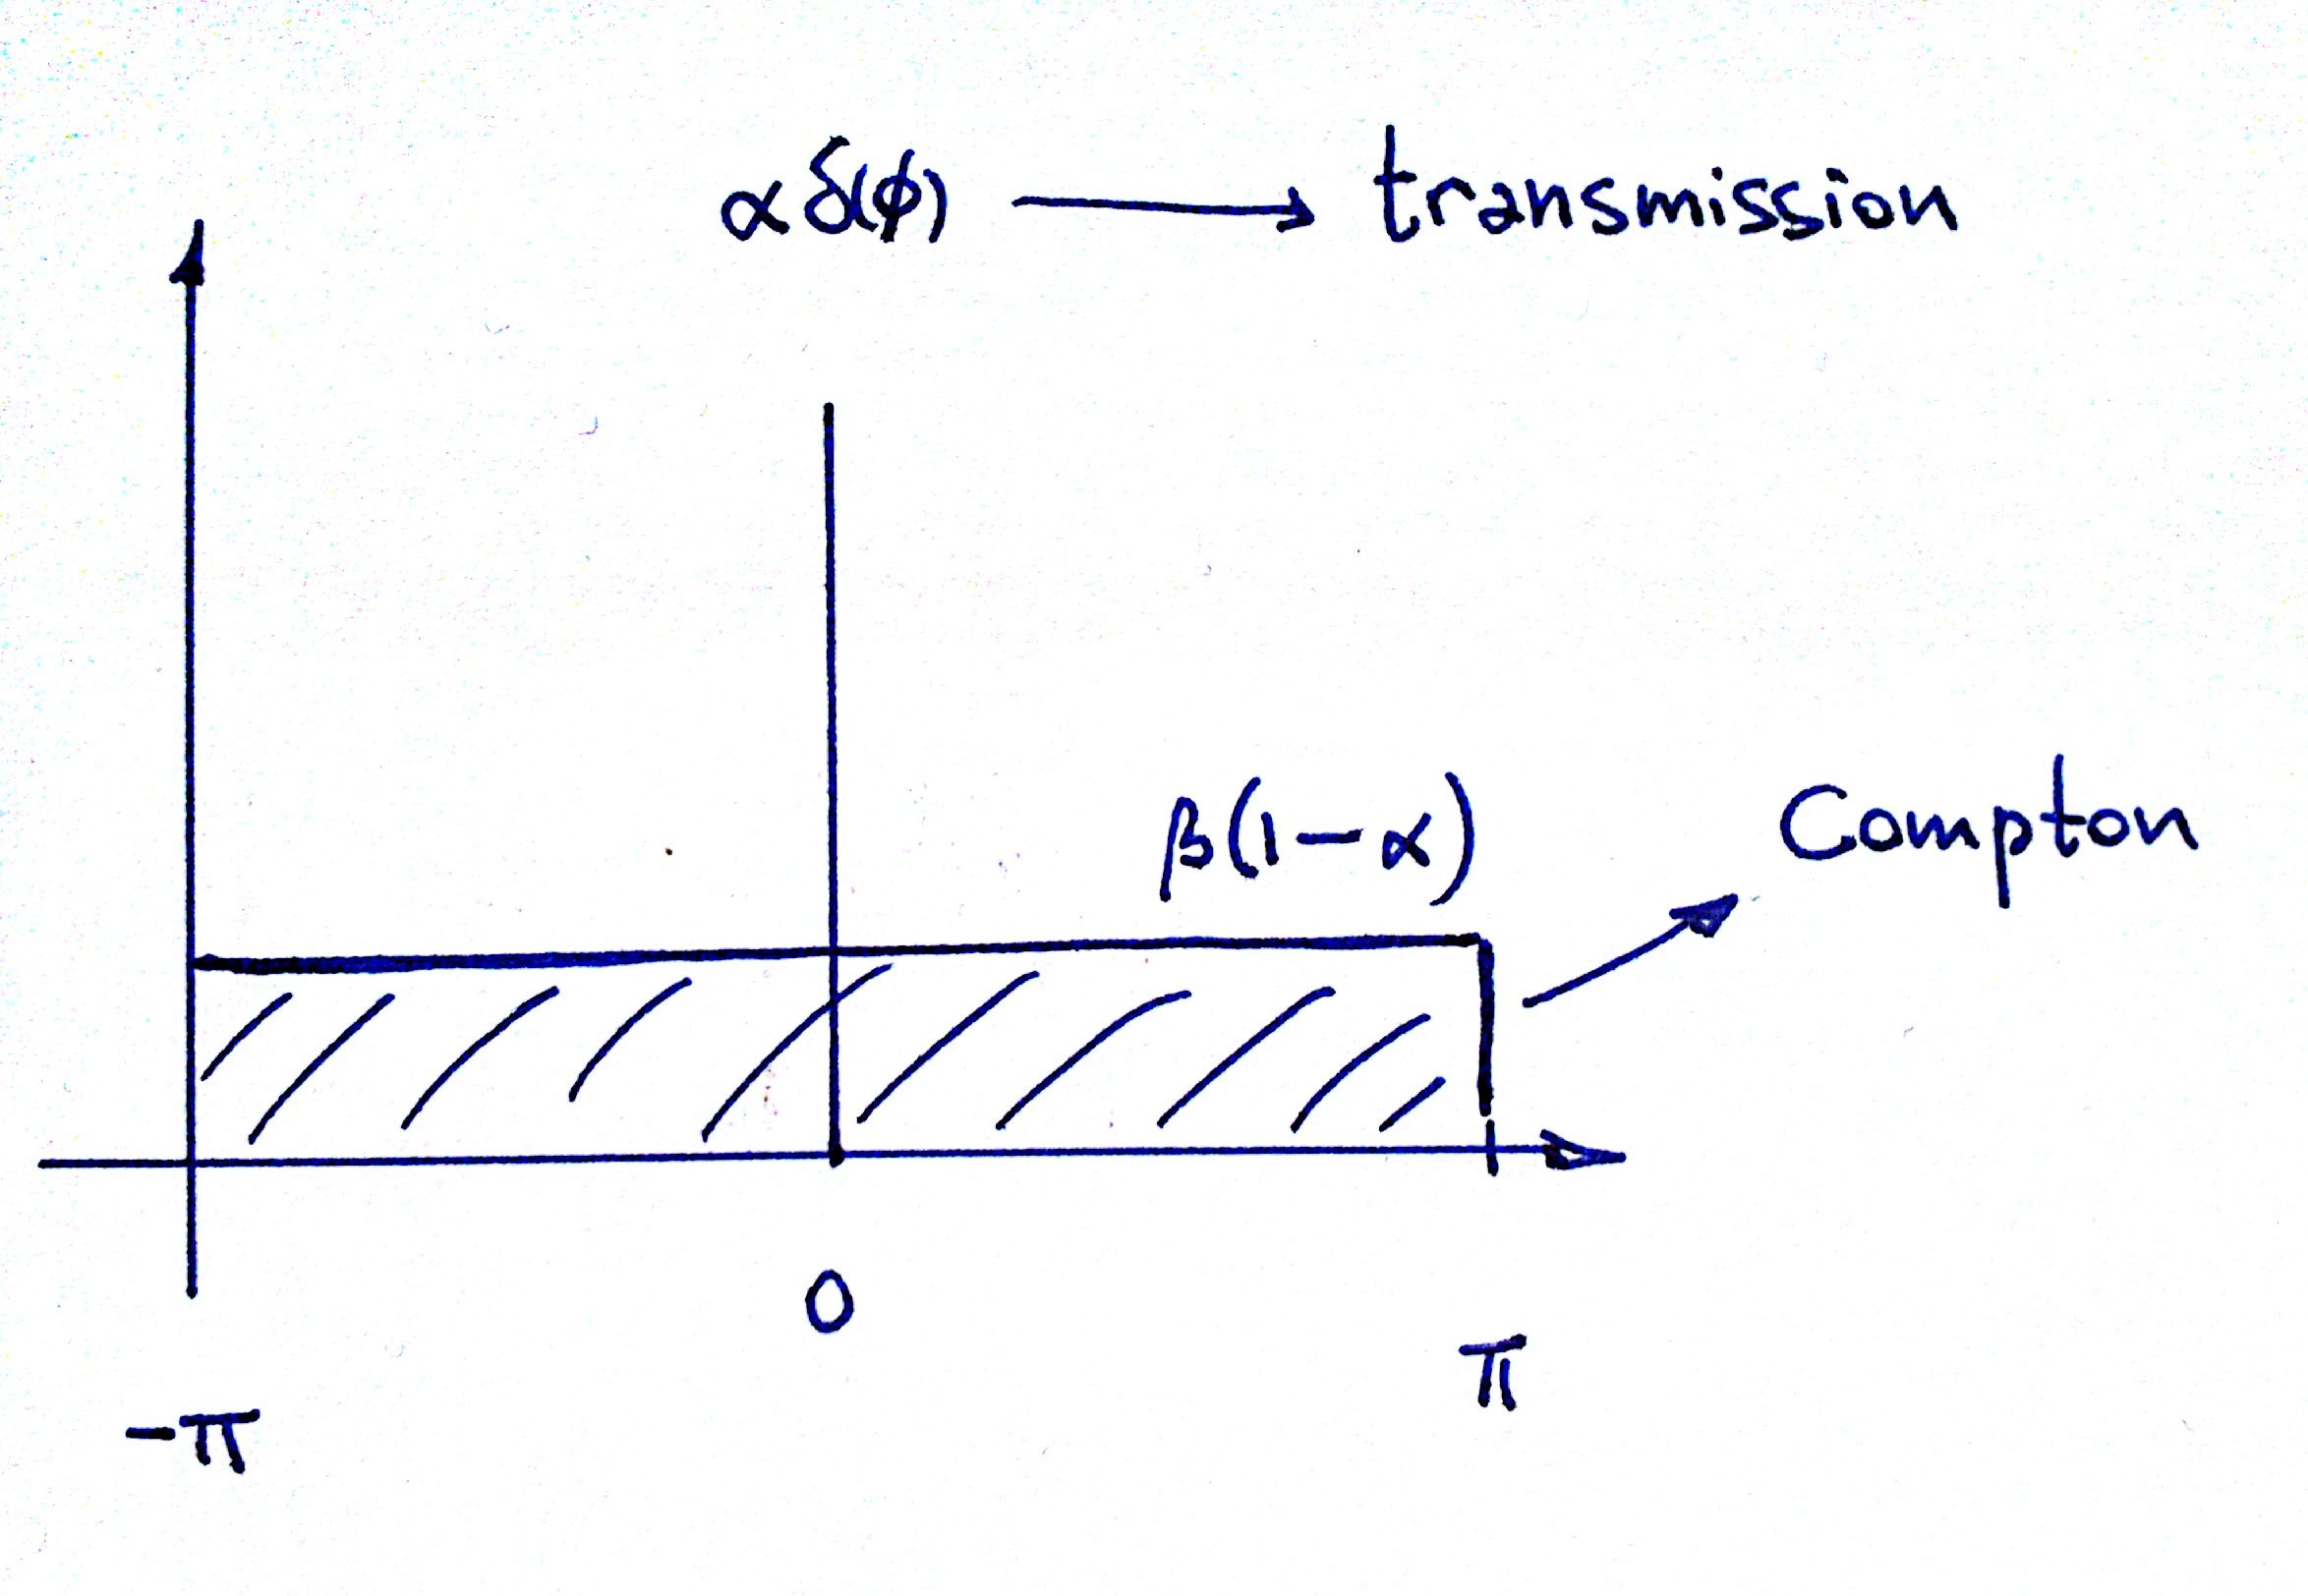 αδ(φ) → transmission
β(1-α)
Compton
0
π
-π